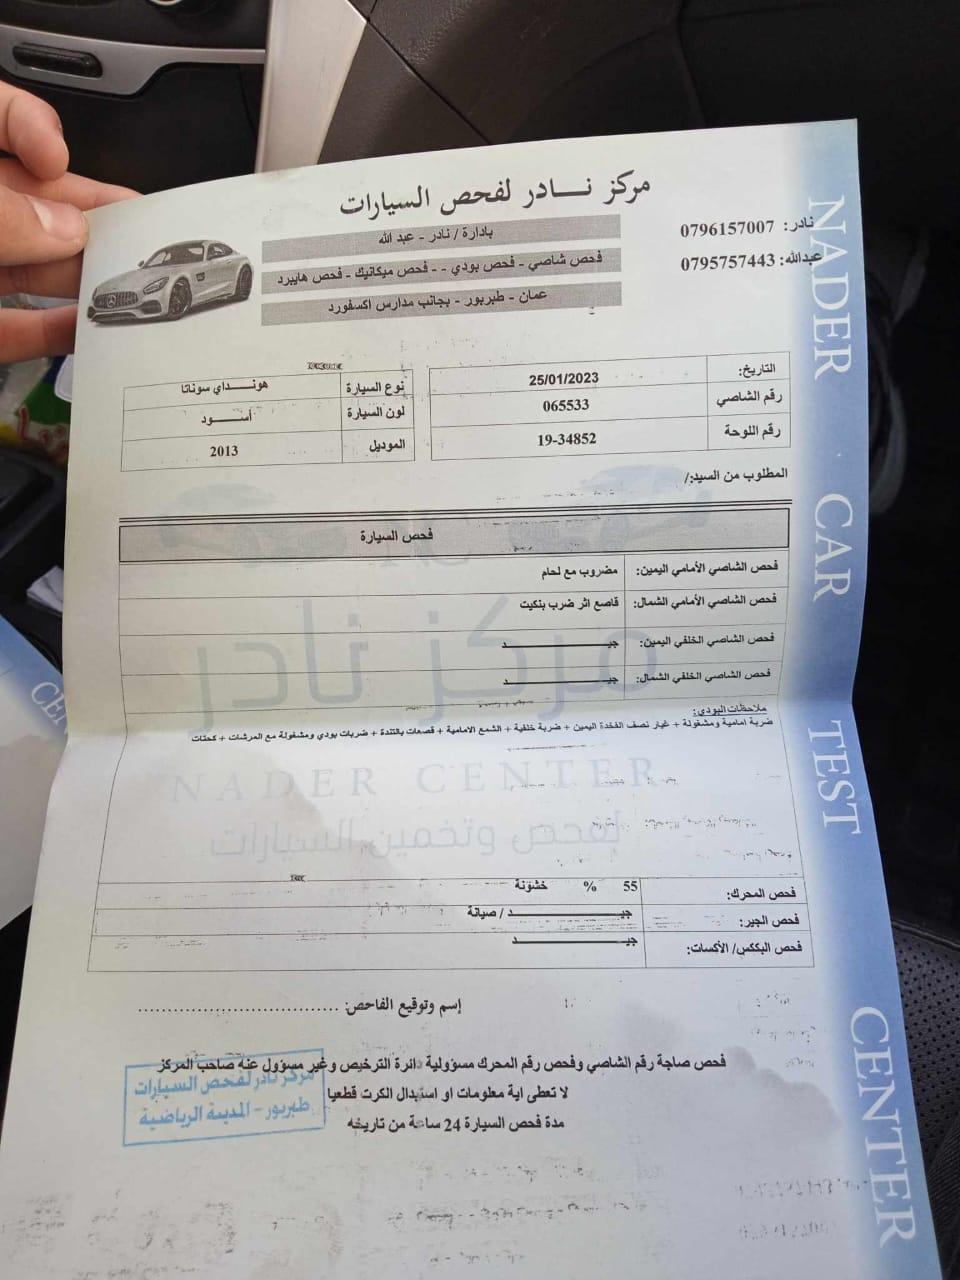 مركز نـــادر لفحص السيارات
بادارة / نادر - عبد الله
فحص شاصي - فحص بودي - - فحص ميكانيك - فحص هايبرد
عمان - طبربور - بجانب مدارس اكسفورد
نادر: 0796157007
عبدالله: 0795757443
التاريخ: 25/01/2023
رقم الشاصي 065533
رقم اللوحة 19-34852
نوع السيارة هونـــداي سوناتا
لون السيارة أســـــود
الموديل 2013
المطلوب من السيد/:
فحص السيارة
فحص الشاصي الأمامي اليمين: مضروب مع لحام
فحص الشاصي الأمامي الشمال: قاصع اثر ضرب بنكيت
فحص الشاصي الخلفي اليمين: جيـــــــــــــد
فحص الشاصي الخلفي الشمال: جيـــــــــــــد
ملاحظات البودي:
ضربة امامية ومشغولة + غيار نصف الفخدة اليمين + ضربة خلفية + الشمع الامامية + قصعات بالتندة + ضربات بودي ومشغولة مع المرشات + كحتات
مركز نادر
NADER CENTER
لفحص وتخمين السيارات
فحص المحرك: 55 % خشونة
فحص الجير: جيـــــــــــــد / صيانة
فحص البكس/ الأكسات: جيـــــــــــــد
إسم وتوقيع الفاحص: ..................................
فحص صاجة رقم الشاصي وفحص رقم المحرك مسؤولية دائرة الترخيص وغير مسؤول عنه صاحب المركز
لا تعطى اية معلومات او استبدال الكرت قطعيا
مدة فحص السيارة 24 ساعة من تاريخه
مركز نادر لفحص السيارات
طبربور - المدينة الرياضية
NADER CAR TEST CENTER